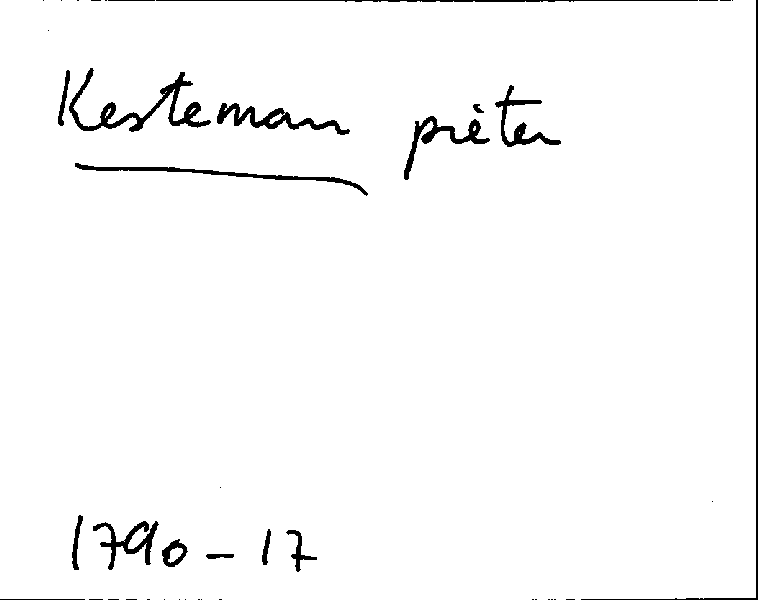 Kesteman pieter
1790 - 17